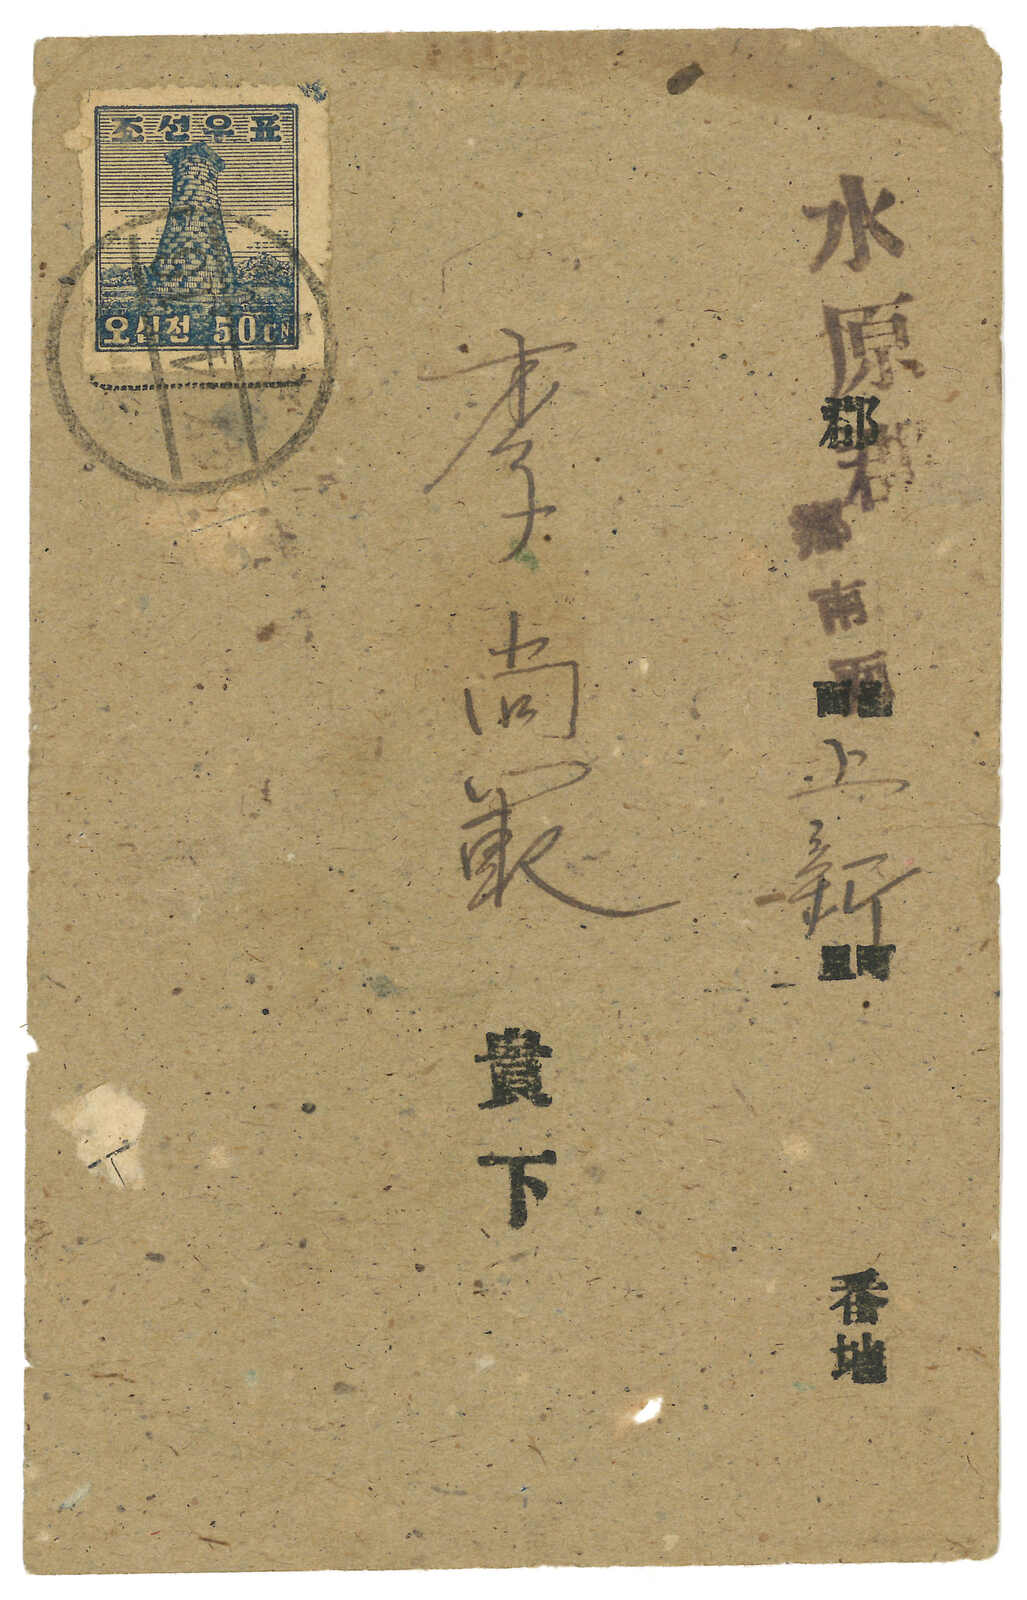 水原郡
郡
鄕南面
上新
里町
番地
李尚範
貴下
조선우표
오십전 50 CN